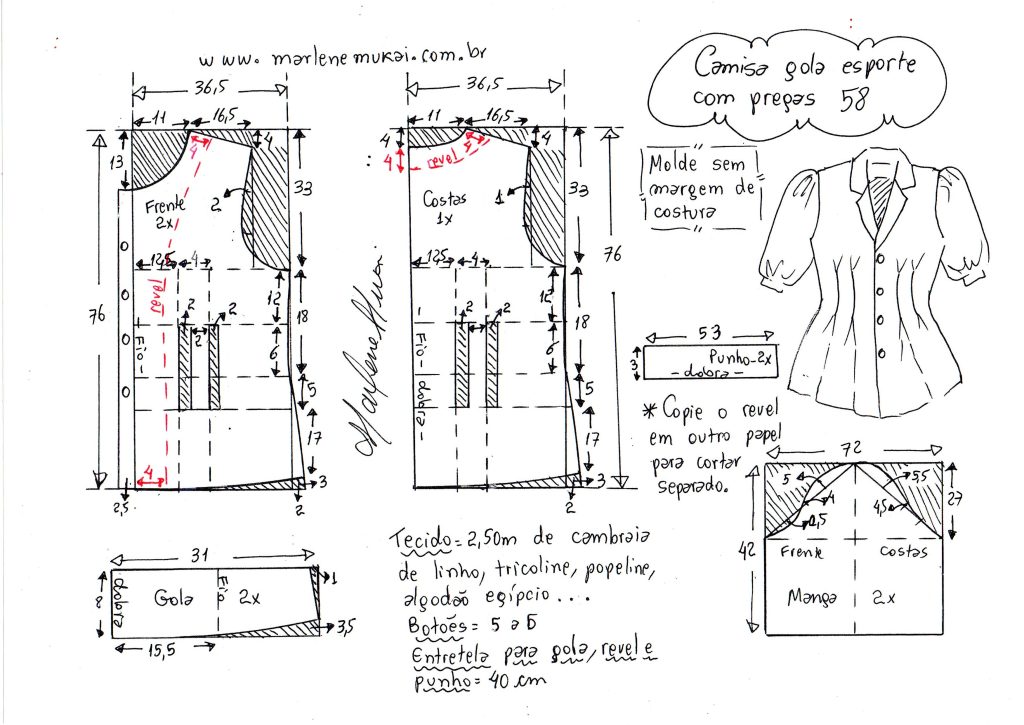 www.marlenemukai.com.br
Camisa gola esporte
com pregas 58
36,5
11
16,5
4
4
13
33
Frente
2x
2
12,5
4
76
revel
12
18
2
2
2
6
Fio
5
17
4
3
2,5
2
36,5
11
16,5
4
4
4
revel
5
33
Costas
1x
1
12,5
4
76
12
18
2
2
2
6
- Fio - dobra -
5
17
3
2
Marlene Mukai
Molde sem
margem de
costura
53
3
Punho-2x
- dobra -
* Copie o revel
em outro papel
para cortar
separado.
72
5
5,5
4
4,5
2,5
27
42
Frente
Costas
Manga 2x
31
8
dobra
Gola
Fio
2x
1
3,5
15,5
Tecido= 2,50m de cambraia
de linho, tricoline, popeline,
algodão egípcio...
Botões= 5 a 6
Entretela para gola, revel e
punho= 40 cm